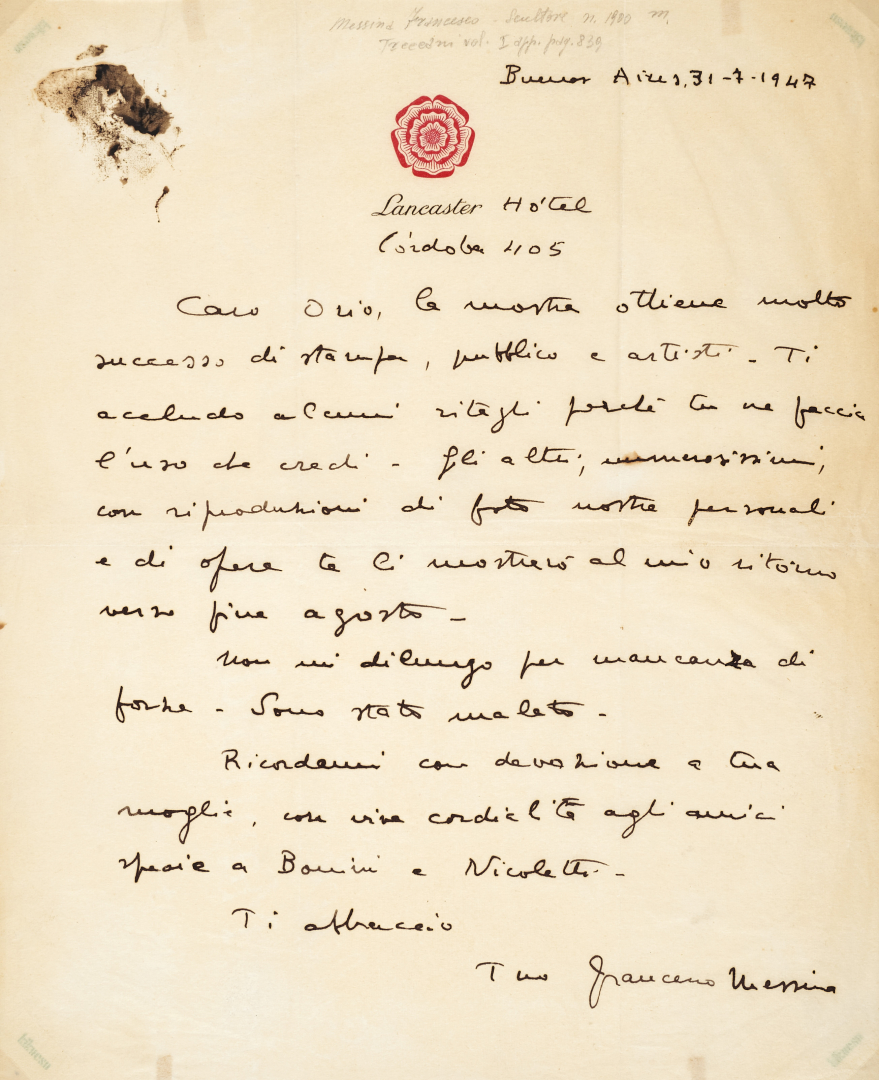 Messina Francesco - Scultore n. 1900 m.
Treccani vol. I app. pag. 839
Buenos Aires, 31-7-1947
Lancaster Hôtel
Córdoba 405
Caro Orio, la mostra ottiene molto
successo di stampa, pubblico e artisti - Ti
accludo alcuni ritagli perché tu ne faccia
l'uso che credi - Gli altri, numerosissimi,
con riproduzioni di foto nostre personali
e di opere te li mostrerò al mio ritorno
verso fine agosto -
Non mi dilungo per mancanza di
forze - Sono stato malato -
Ricordami con devozione a tua
moglie, con viva cordialità agli amici
specie a Bonini e Nicoletti -
Ti abbraccio
Tuo Francesco Messina